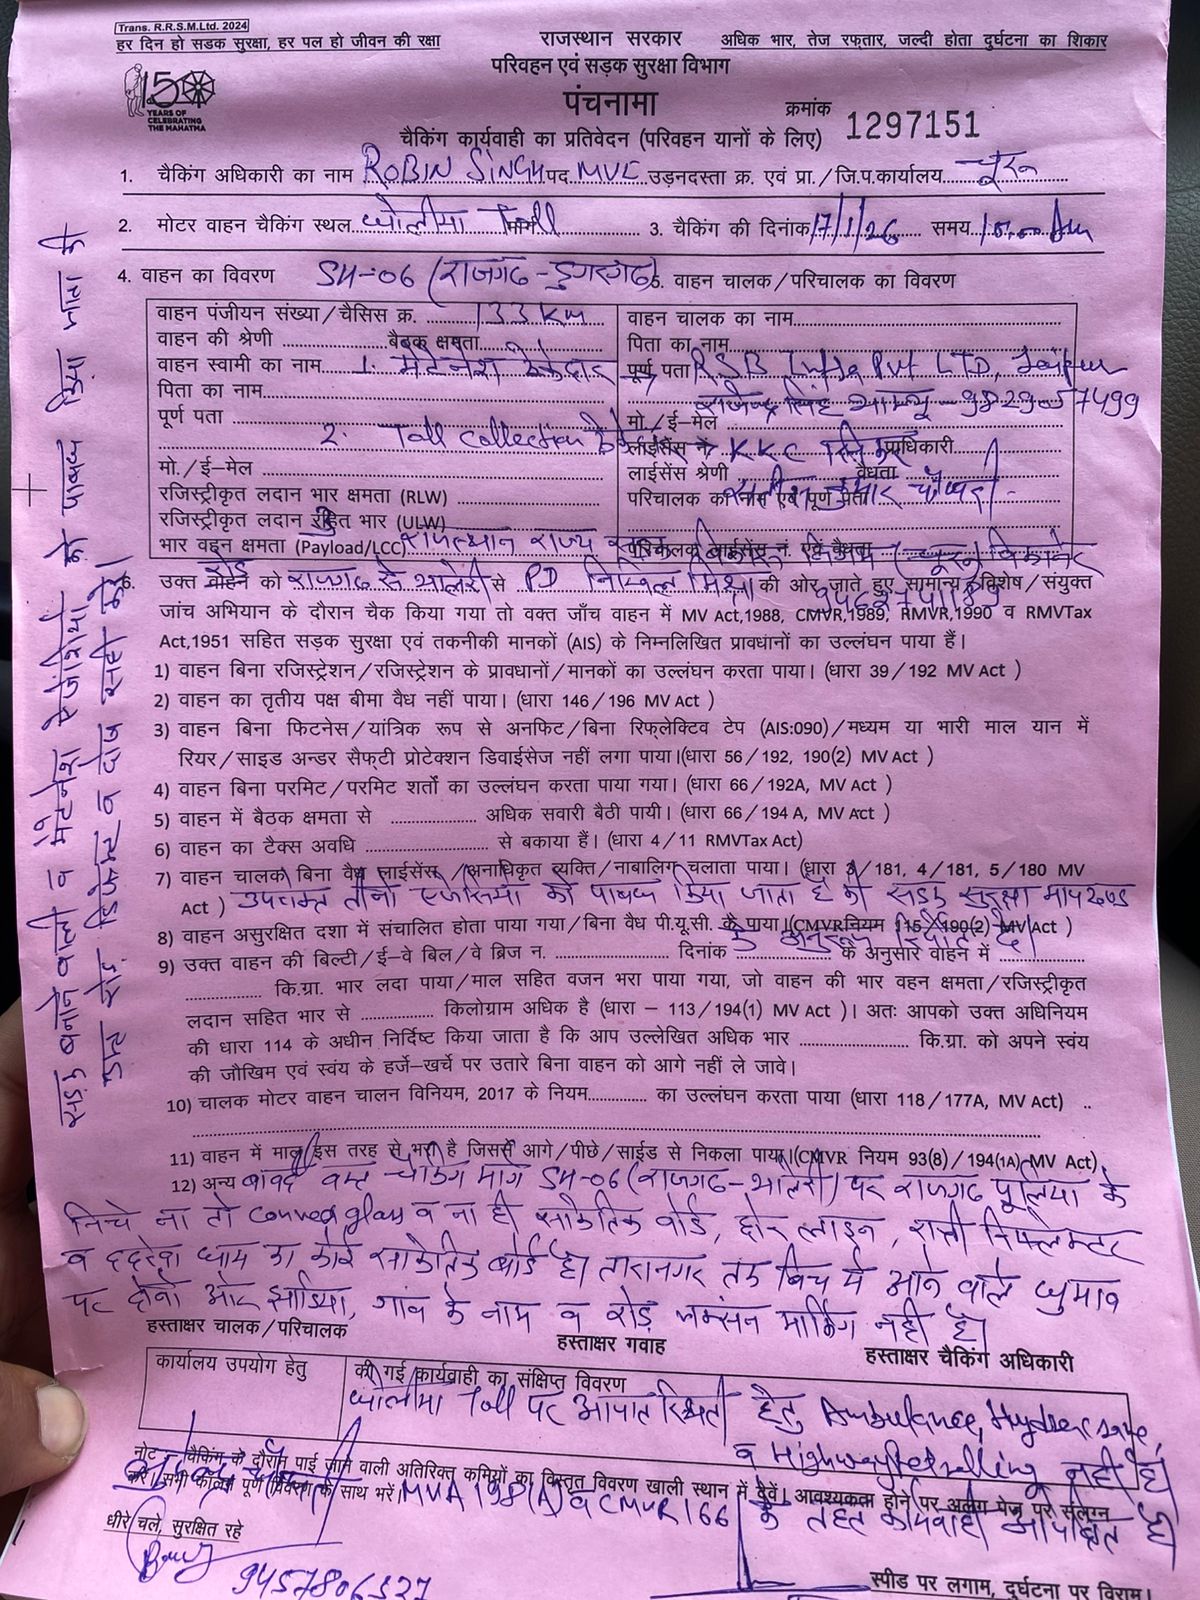 Trans. R.R.S.M.Ltd. 2024
हर दिन हो सडक सुरक्षा, हर पल हो जीवन की रक्षा
राजस्थान सरकार
अधिक भार, तेज रफ्तार, जल्दी होता दुर्घटना का शिकार
परिवहन एवं सड़क सुरक्षा विभाग
150
YEARS OF
CELEBRATING
THE MAHATMA
पंचनामा
क्रमांक 1297151
चैकिंग कार्यवाही का प्रतिवेदन (परिवहन यानों के लिए)
1. चैकिंग अधिकारी का नाम ROBIN SINGH पद MVI उड़नदस्ता क्र. एवं प्रा./जि.प.कार्यालय चूरू
2. मोटर वाहन चैकिंग स्थल Toll 3. चैकिंग की दिनांक 17/1/26 समय
4. वाहन का विवरण SH-06 (राजगढ-डुंगरगढ) 5. वाहन चालक/परिचालक का विवरण
वाहन पंजीयन संख्या/चैसिस क्र. 133 Km
वाहन की श्रेणी बैठक क्षमता
वाहन स्वामी का नाम 1. मेटेनेंश ठेकेदार
पिता का नाम
पूर्ण पता
2. Toll Collection
मो./ई-मेल
रजिस्ट्रीकृत लदान भार क्षमता (RLW)
रजिस्ट्रीकृत लदान रहित भार (ULW)
भार वहन क्षमता (Payload/LCC) राजस्थान राज्य
वाहन चालक का नाम
पिता का नाम
पूर्ण पता RSB Infra Pvt LTD, Jaipur
राजेन्द्र सिंह 9829057499
मो./ई-मेल
लाईसेंस नं. KKC प्राधिकारी
लाईसेंस श्रेणी वैधता
परिचालक का नाम एवं पूर्ण पता कुमार
परिचालक लाईसेंस नं. एवं वैधता
6. उक्त वाहन रोड को राजगढ से भालेरी से PD की ओर जाते हुए सामान्य/विशेष/संयुक्त
जांच अभियान के दौरान चैक किया गया तो वक्त जाँच वाहन में MV Act,1988, CMVR,1989, RMVR,1990 व RMVTax
Act,1951 सहित सड़क सुरक्षा एवं तकनीकी मानकों (AIS) के निम्नलिखित प्रावधानों का उल्लंघन पाया हैं।
1) वाहन बिना रजिस्ट्रेशन/रजिस्ट्रेशन के प्रावधानों/मानकों का उल्लंघन करता पाया। (धारा 39/192 MV Act )
2) वाहन का तृतीय पक्ष बीमा वैध नहीं पाया। (धारा 146/196 MV Act )
3) वाहन बिना फिटनेस/यांत्रिक रूप से अनफिट/बिना रिफ्लेक्टिव टेप (AIS:090)/मध्यम या भारी माल यान में
रियर/साइड अन्डर सैफ्टी प्रोटेक्शन डिवाईसेज नहीं लगा पाया।(धारा 56/192, 190(2) MV Act )
4) वाहन बिना परमिट/परमिट शर्तो का उल्लंघन करता पाया गया। (धारा 66/192A, MV Act )
5) वाहन में बैठक क्षमता से अधिक सवारी बैठी पायी। (धारा 66/194 A, MV Act )
6) वाहन का टैक्स अवधि से बकाया हैं। (धारा 4/11 RMVTax Act)
7) वाहन चालक बिना वैध लाईसेंस/अनाधिकृत व्यक्ति/नाबालिग चलाता पाया। (धारा 3/181, 4/181, 5/180 MV
Act ) उपरोक्त तीनो एजेंसियों को पाबंध किया जाता है की सड़क सुरक्षा मापदण्ड
के अनुरूप रिपोर्ट दे।
8) वाहन असुरक्षित दशा में संचालित होता पाया गया/बिना वैध पी.यू.सी. के पाया।(CMVRनियम 115/190(2) MV Act )
9) उक्त वाहन की बिल्टी/ई-वे बिल/वे ब्रिज न. दिनांक के अनुसार वाहन में
कि.ग्रा. भार लदा पाया/माल सहित वजन भरा पाया गया, जो वाहन की भार वहन क्षमता/रजिस्ट्रीकृत
लदान सहित भार से किलोग्राम अधिक है (धारा – 113/194(1) MV Act )। अतः आपको उक्त अधिनियम
की धारा 114 के अधीन निर्दिष्ट किया जाता है कि आप उल्लेखित अधिक भार कि.ग्रा. को अपने स्वंय
की जौखिम एवं स्वंय के हर्जे-खर्चे पर उतारे बिना वाहन को आगे नहीं ले जावे।
10) चालक मोटर वाहन चालन विनियम, 2017 के नियम का उल्लंघन करता पाया (धारा 118/177A, MV Act)
11) वाहन में माल इस तरह से भरा है जिससे आगे/पीछे/साईड से निकला पाया।(CMVR नियम 93(8)/194(1A) MV Act)
12) अन्य बावर्द वक्त चैकिंग मार्ग SH-06 (राजगढ-भालेरी) पर राजगढ पूलिया के
निचे ना तो convex glass व ना ही सांकेतिक बोर्ड, छोर लाइन, रात्री रिफ्लेक्टर
व ददरेवा धाम का कोई सांकेतिक बोर्ड है। तारानगर तक बिच में आने वाले घुमाव
पर दोनो ओर झाडिया, गांव के नाम व रोड़ जक्सन मार्किंग नही है।
हस्ताक्षर चालक/परिचालक
हस्ताक्षर गवाह
हस्ताक्षर चैकिंग अधिकारी
कार्यालय उपयोग हेतु
की गई कार्यवाही का संक्षिप्त विवरण
Toll पर आपात स्थिती हेतु Ambulance, Hydra,
व Highway Petrolling नही है।
नोट चैकिंग के दौरान पाई जाने वाली अतिरिक्त कमियों का विस्तृत विवरण खाली स्थान में देवें। आवश्यकता होने पर अलग पेज पर संलग्न
करें। सभी कॉलम पूर्ण विवरण के साथ भरें। MVA 198(A) व CMVR 166 के तहत कार्यवाही अपेक्षित है
धीरे चले, सुरक्षित रहे
9457806527
स्पीड पर लगाम, दुर्घटना पर विराम।
सड़क बनाने वाली व मेटेनेंश ऐजेंसीयो को पाबंध किया जाता है की
रोड़ डिफेक्ट व दोष सही करे।